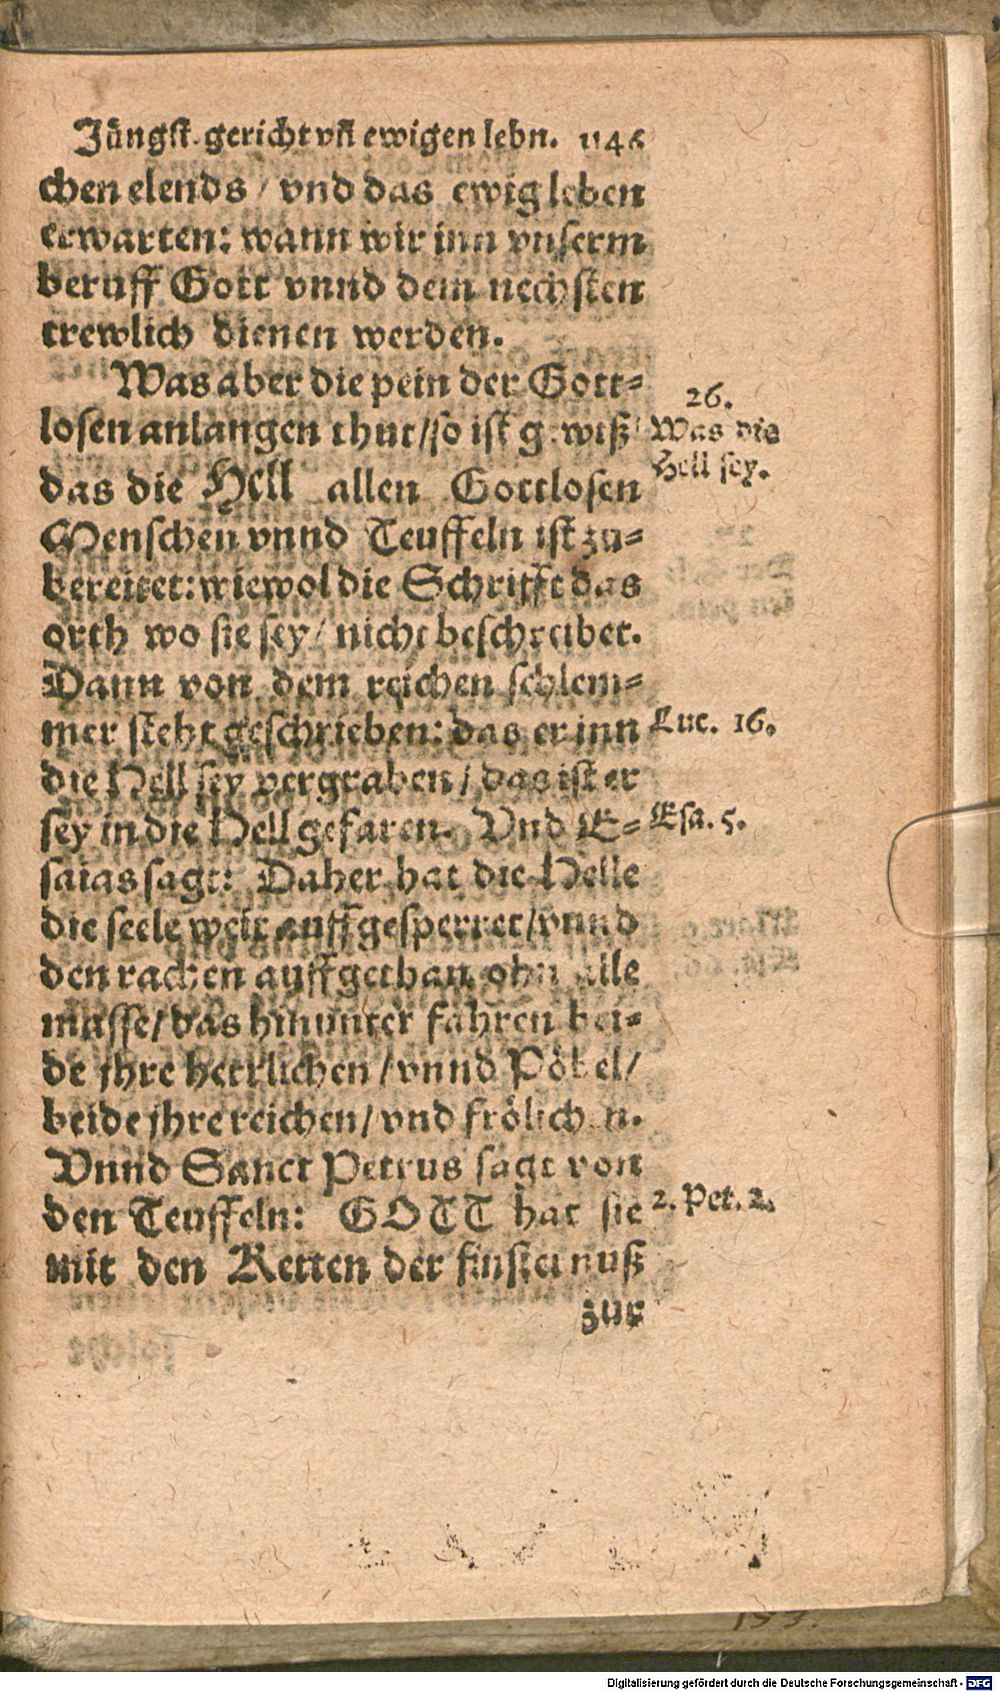 Jüngst. gericht vñ ewigen lebn. 1145
chen elends / vnd das ewig leben
erwarten: wann wir inn vnserm
beruff Gott vnnd dem nechsten
trewlich dienen werden.
Was aber die pein der Gott-
losen anlangen thut / so ist gewiß /
26.
Was die
Hell sey.
das die Hell allen Gottlosen
Menschen vnnd Teuffeln ist zu-
bereitet: wiewol die Schrifft das
orth wo sie sey / nicht beschreibet.
Dann von dem reichen schlem-
mer steht geschrieben: das er inn
Luc. 16.
die Hell sey vergraben / das ist er
sey in die Hell gefaren. Vnd E-
Esa. 5.
saias sagt: Daher hat die Helle
die seele weit auffgesperret / vnnd
den rachen auffgethan ohn alle
masse / das hinunter fahren bei-
de jhre herrlichen / vnnd Pöbel /
beide jhre reichen / vnd frölichen.
Vnnd Sanct Petrus sagt von
den Teuffeln: GOTT hat sie
2. Pet. 2.
mit den Ketten der finsternuß
zur
Digitalisierung gefördert durch die Deutsche Forschungsgemeinschaft - DFG